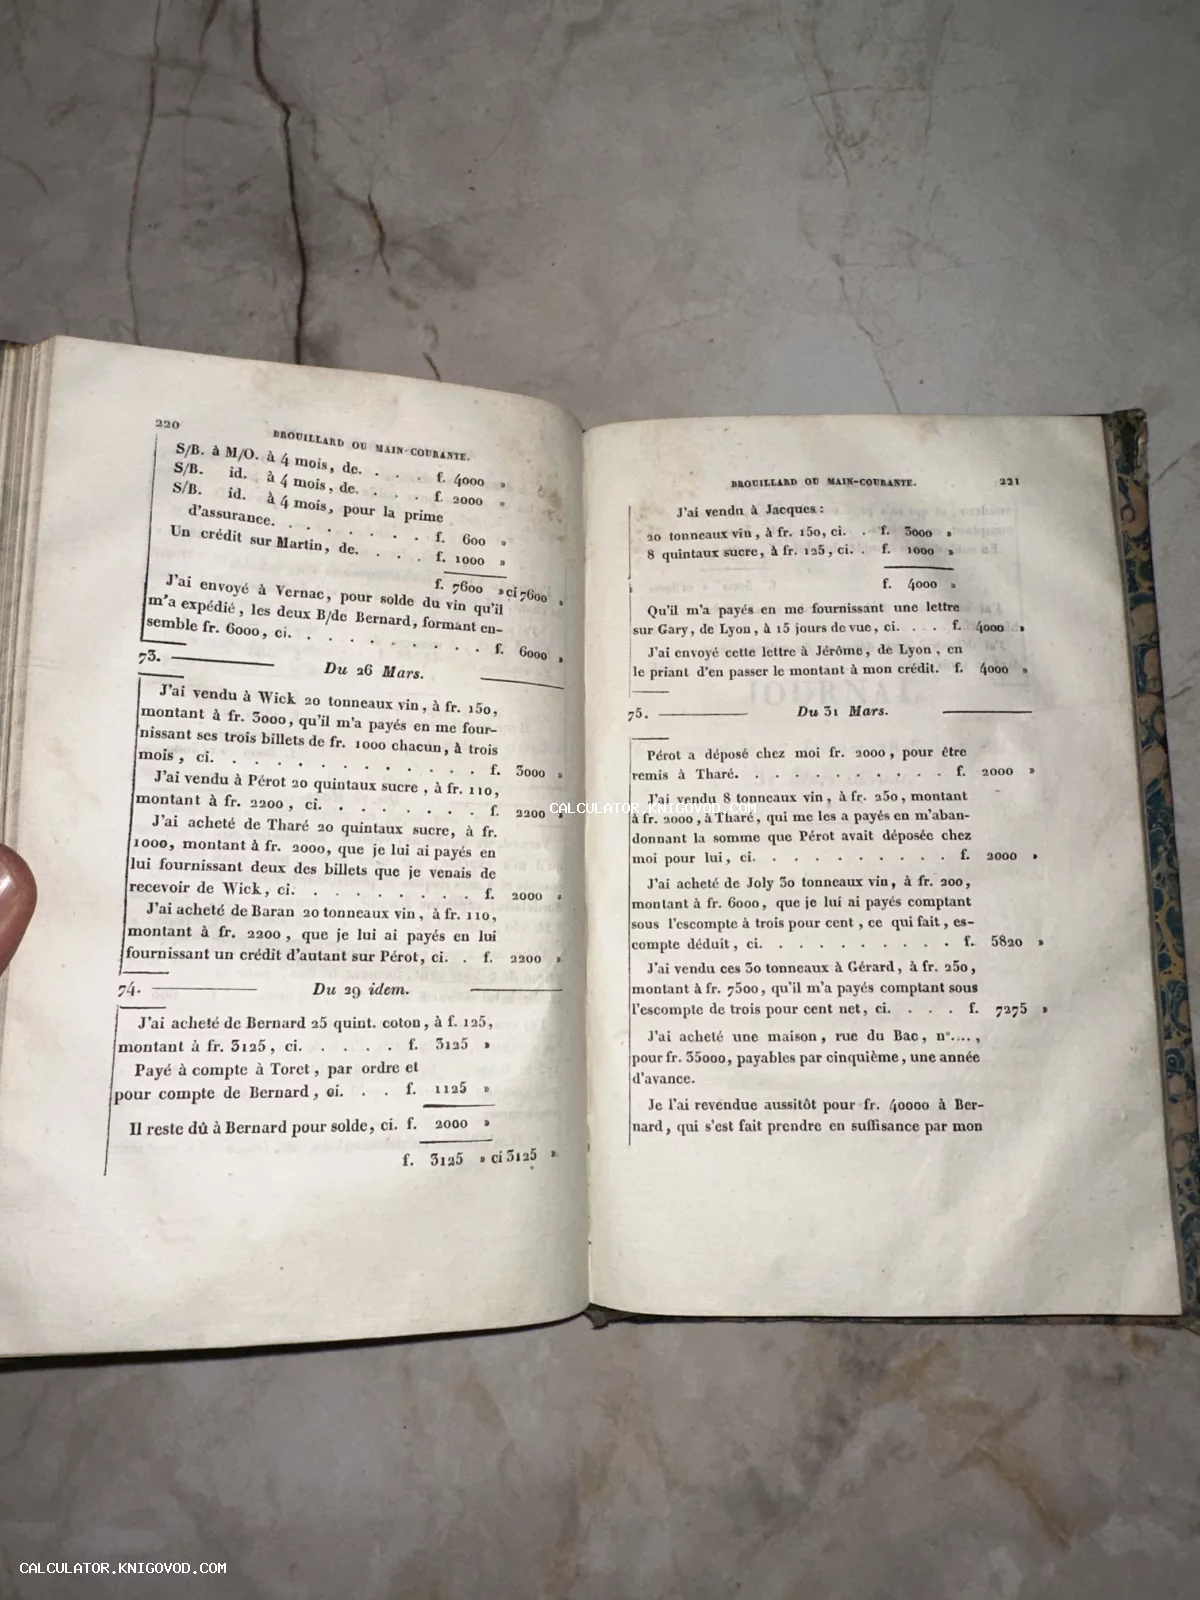 220
BROUILLARD OU MAIN-COURANTE.
S/B. à M/O. à 4 mois, de. . . . f. 4000 »
S/B. id. à 4 mois, de. . . . f. 2000 »
S/B. id. à 4 mois, pour la prime
d'assurance. . . . . . . f. 600 »
Un crédit sur Martin, de. . . . f. 1000 »
f. 7600 » ci 7600 »
J'ai envoyé à Vernac, pour solde du vin qu'il
m'a expédié, les deux B/de Bernard, formant en-
semble fr. 6000, ci. . . . . . . . . f. 6000 »
73. Du 26 Mars.
J'ai vendu à Wick 20 tonneaux vin, à fr. 150,
montant à fr. 3000, qu'il m'a payés en me four-
nissant ses trois billets de fr. 1000 chacun, à trois
mois, ci. . . . . . . . . . . . . f. 3000 »
J'ai vendu à Pérot 20 quintaux sucre, à fr. 110,
montant à fr. 2200, ci. . . . . . . . f. 2200 »
J'ai acheté de Tharé 20 quintaux sucre, à fr.
1000, montant à fr. 2000, que je lui ai payés en
lui fournissant deux des billets que je venais de
recevoir de Wick, ci. . . . . . . . . f. 2000 »
J'ai acheté de Baran 20 tonneaux vin, à fr. 110,
montant à fr. 2200, que je lui ai payés en lui
fournissant un crédit d'autant sur Pérot, ci. . f. 2200 »
74. Du 29 idem.
J'ai acheté de Bernard 25 quint. coton, à f. 125,
montant à fr. 3125, ci. . . . . f. 3125 »
Payé à compte à Toret, par ordre et
pour compte de Bernard, ci. . . f. 1125 »
Il reste dû à Bernard pour solde, ci. f. 2000 »
f. 3125 » ci 3125 »
BROUILLARD OU MAIN-COURANTE. 221
J'ai vendu à Jacques :
20 tonneaux vin, à fr. 150, ci. . f. 3000 »
8 quintaux sucre, à fr. 125, ci. . f. 1000 »
f. 4000 »
Qu'il m'a payés en me fournissant une lettre
sur Gary, de Lyon, à 15 jours de vue, ci. . . . f. 4000 »
J'ai envoyé cette lettre à Jérôme, de Lyon, en
le priant d'en passer le montant à mon crédit. f. 4000 »
75. Du 31 Mars.
Pérot a déposé chez moi fr. 2000, pour être
remis à Tharé. . . . . . . . . . . f. 2000 »
J'ai vendu 8 tonneaux vin, à fr. 250, montant
à fr. 2000, à Tharé, qui me les a payés en m'aban-
donnant la somme que Pérot avait déposée chez
moi pour lui, ci. . . . . . . . . . f. 2000 »
J'ai acheté de Joly 30 tonneaux vin, à fr. 200,
montant à fr. 6000, que je lui ai payés comptant
sous l'escompte à trois pour cent, ce qui fait, es-
compte déduit, ci. . . . . . . . . . f. 5820 »
J'ai vendu ces 30 tonneaux à Gérard, à fr. 250,
montant à fr. 7500, qu'il m'a payés comptant sous
l'escompte de trois pour cent net, ci. . . . f. 7275 »
J'ai acheté une maison, rue du Bac, n°....,
pour fr. 35000, payables par cinquième, une année
d'avance.
Je l'ai revendue aussitôt pour fr. 40000 à Ber-
nard, qui s'est fait prendre en suffisance par mon
CALCULATOR.KNIGOVOD.COM
CALCULATOR.KNIGOVOD.COM